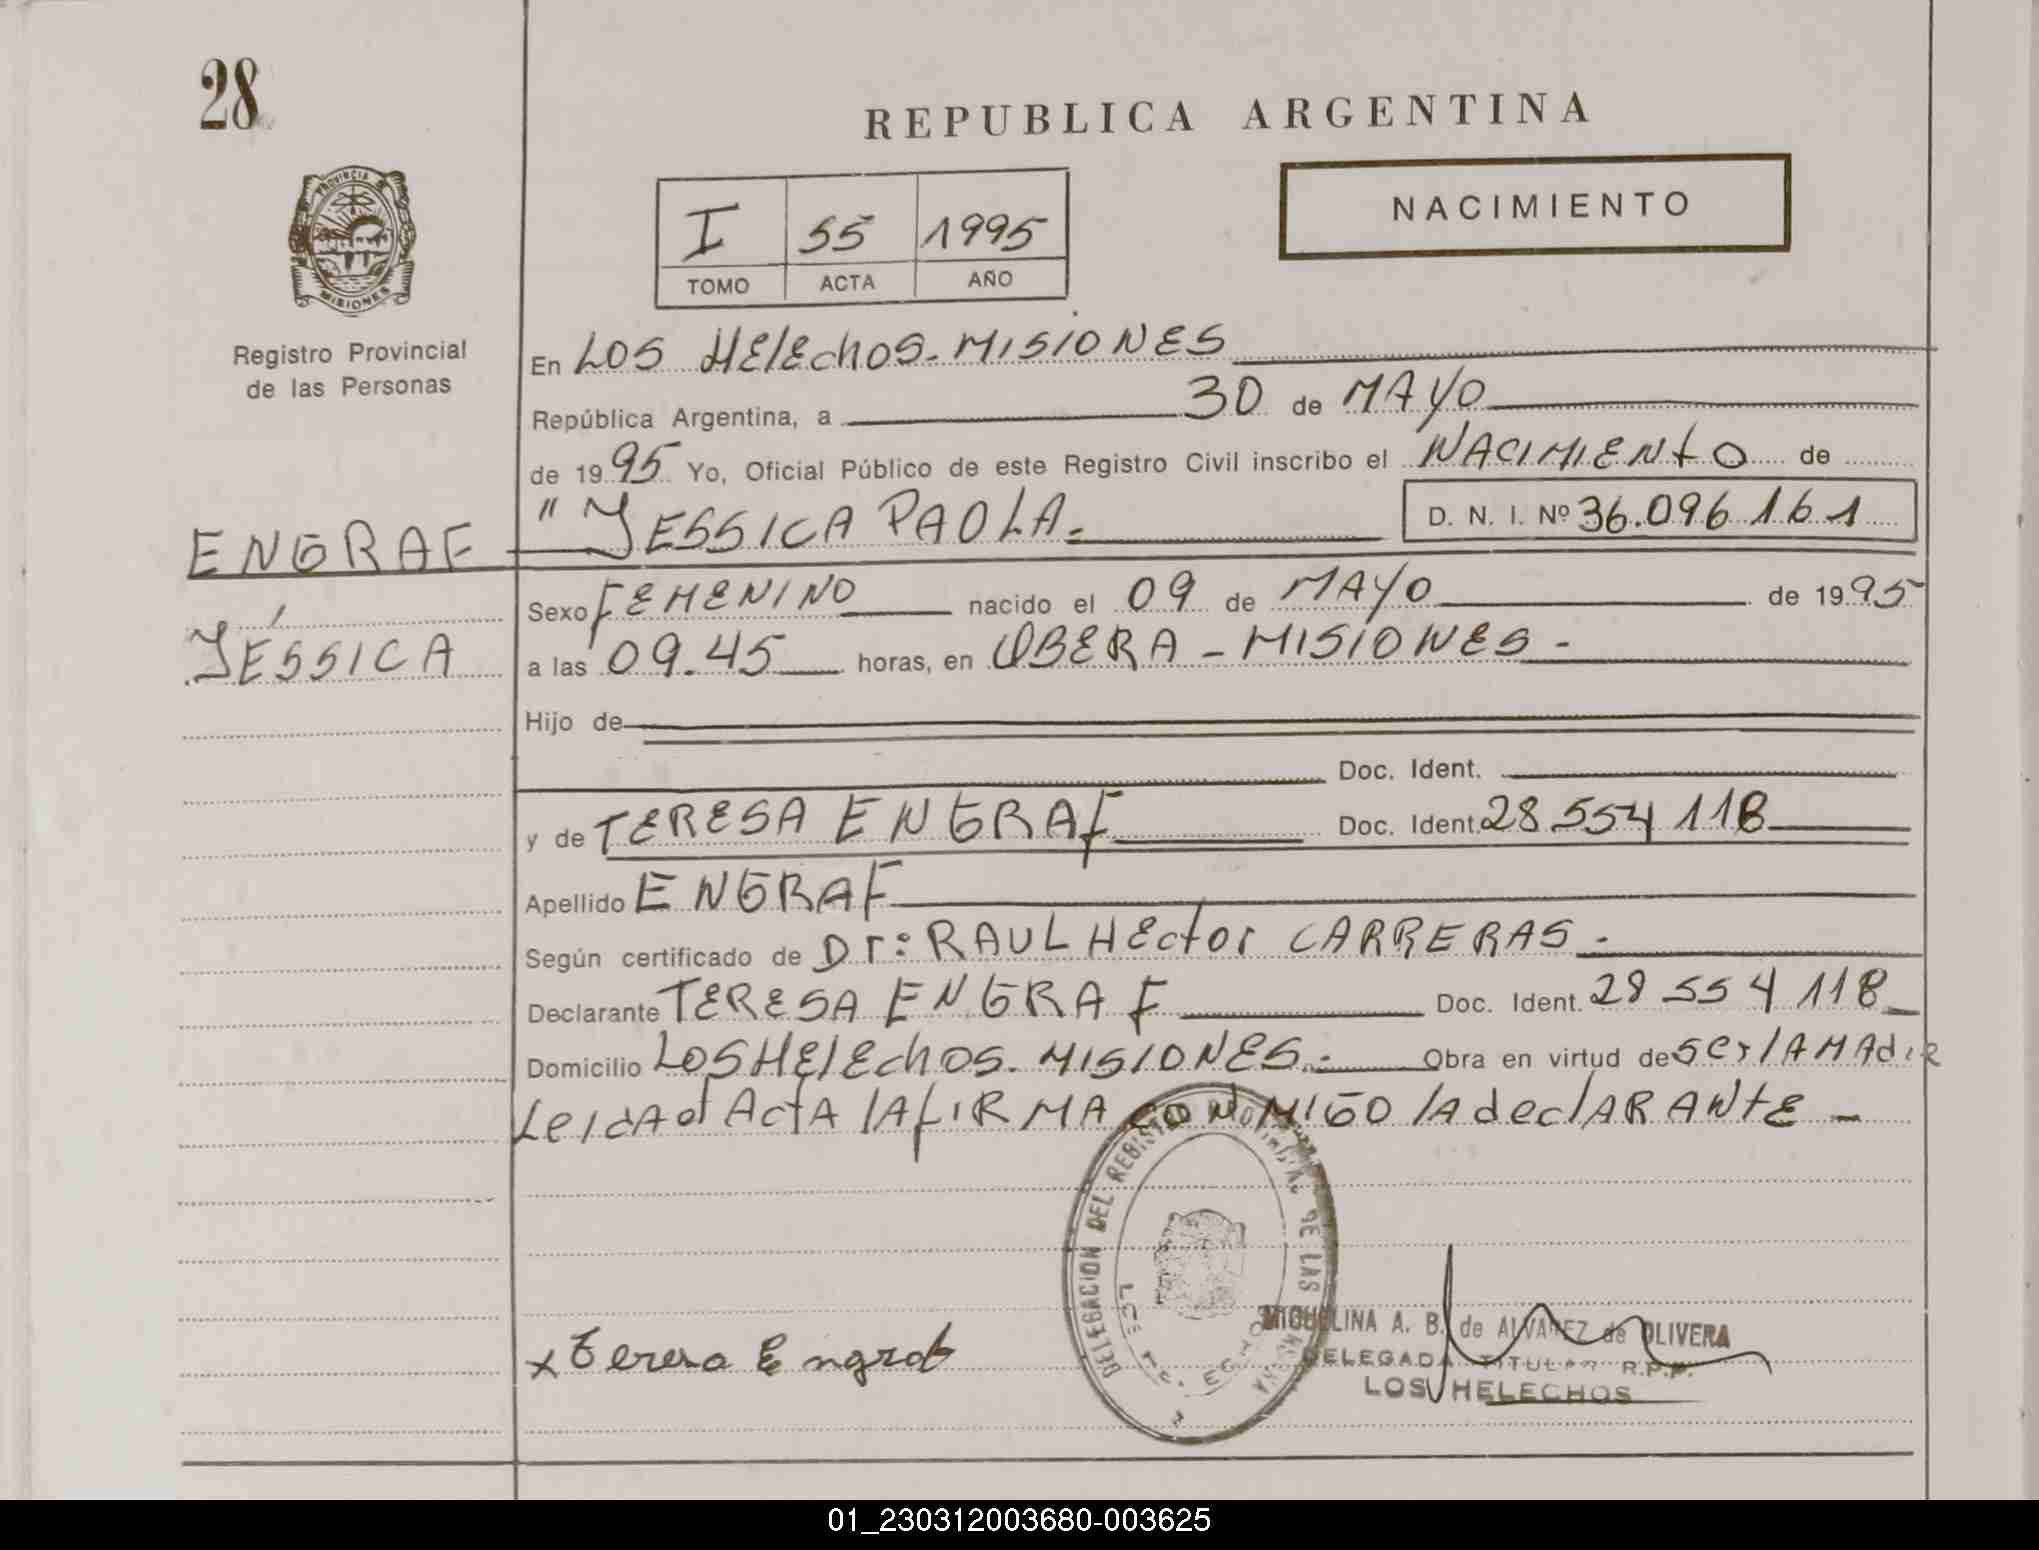 28
REPUBLICA ARGENTINA
PROVINCIA DE
MISIONES
Registro Provincial
de las Personas
I 55 1995
TOMO ACTA AÑO
NACIMIENTO
En LOS HElEchOS - MISIONES
República Argentina, a 30 de MAYO
de 1995 Yo, Oficial Público de este Registro Civil inscribo el NACIMIENtO de
"JESSICA PAOLA.= D. N. I. Nº 36.096.161
ENGRAF
JÉSSICA
Sexo fEMENINO nacido el 09 de MAYO de 1995
a las 09.45 horas, en OBERA - MISIONES -
Hijo de
Doc. Ident.
y de TERESA ENGRAf Doc. Ident. 28 554 118
Apellido ENGRAF
Según certificado de Dr: RAUL HEctor CARRERAS -
Declarante TERESA ENGRAF Doc. Ident. 28 554 118
Domicilio LOS HElEchOS - MISIONES.- Obra en virtud de ser lA MAdrE
LeidA el ActA lA fIRMA CONMIGO lA declARANtE -
DELEGACION DEL REGISTRO PROVINCIAL DE LAS
x teresa Engraf
MIGUELINA A. B. de ALVAREZ de OLIVERA
DELEGADA TITULAR R.P.P.
LOS HELECHOS
01_230312003680-003625